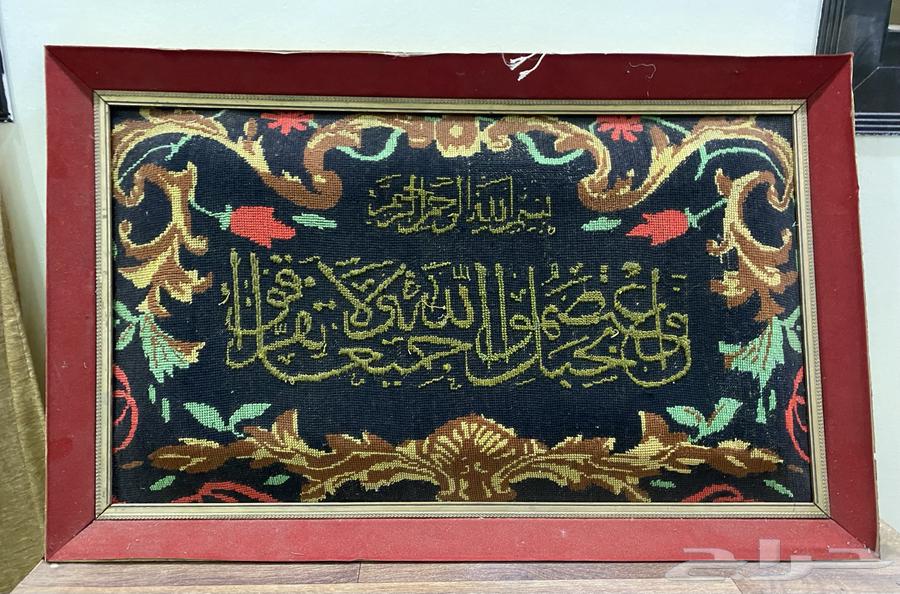 بسم الله الرحمن الرحيم
واعتصموا بحبل الله جميعا ولا تفرقوا
حراج